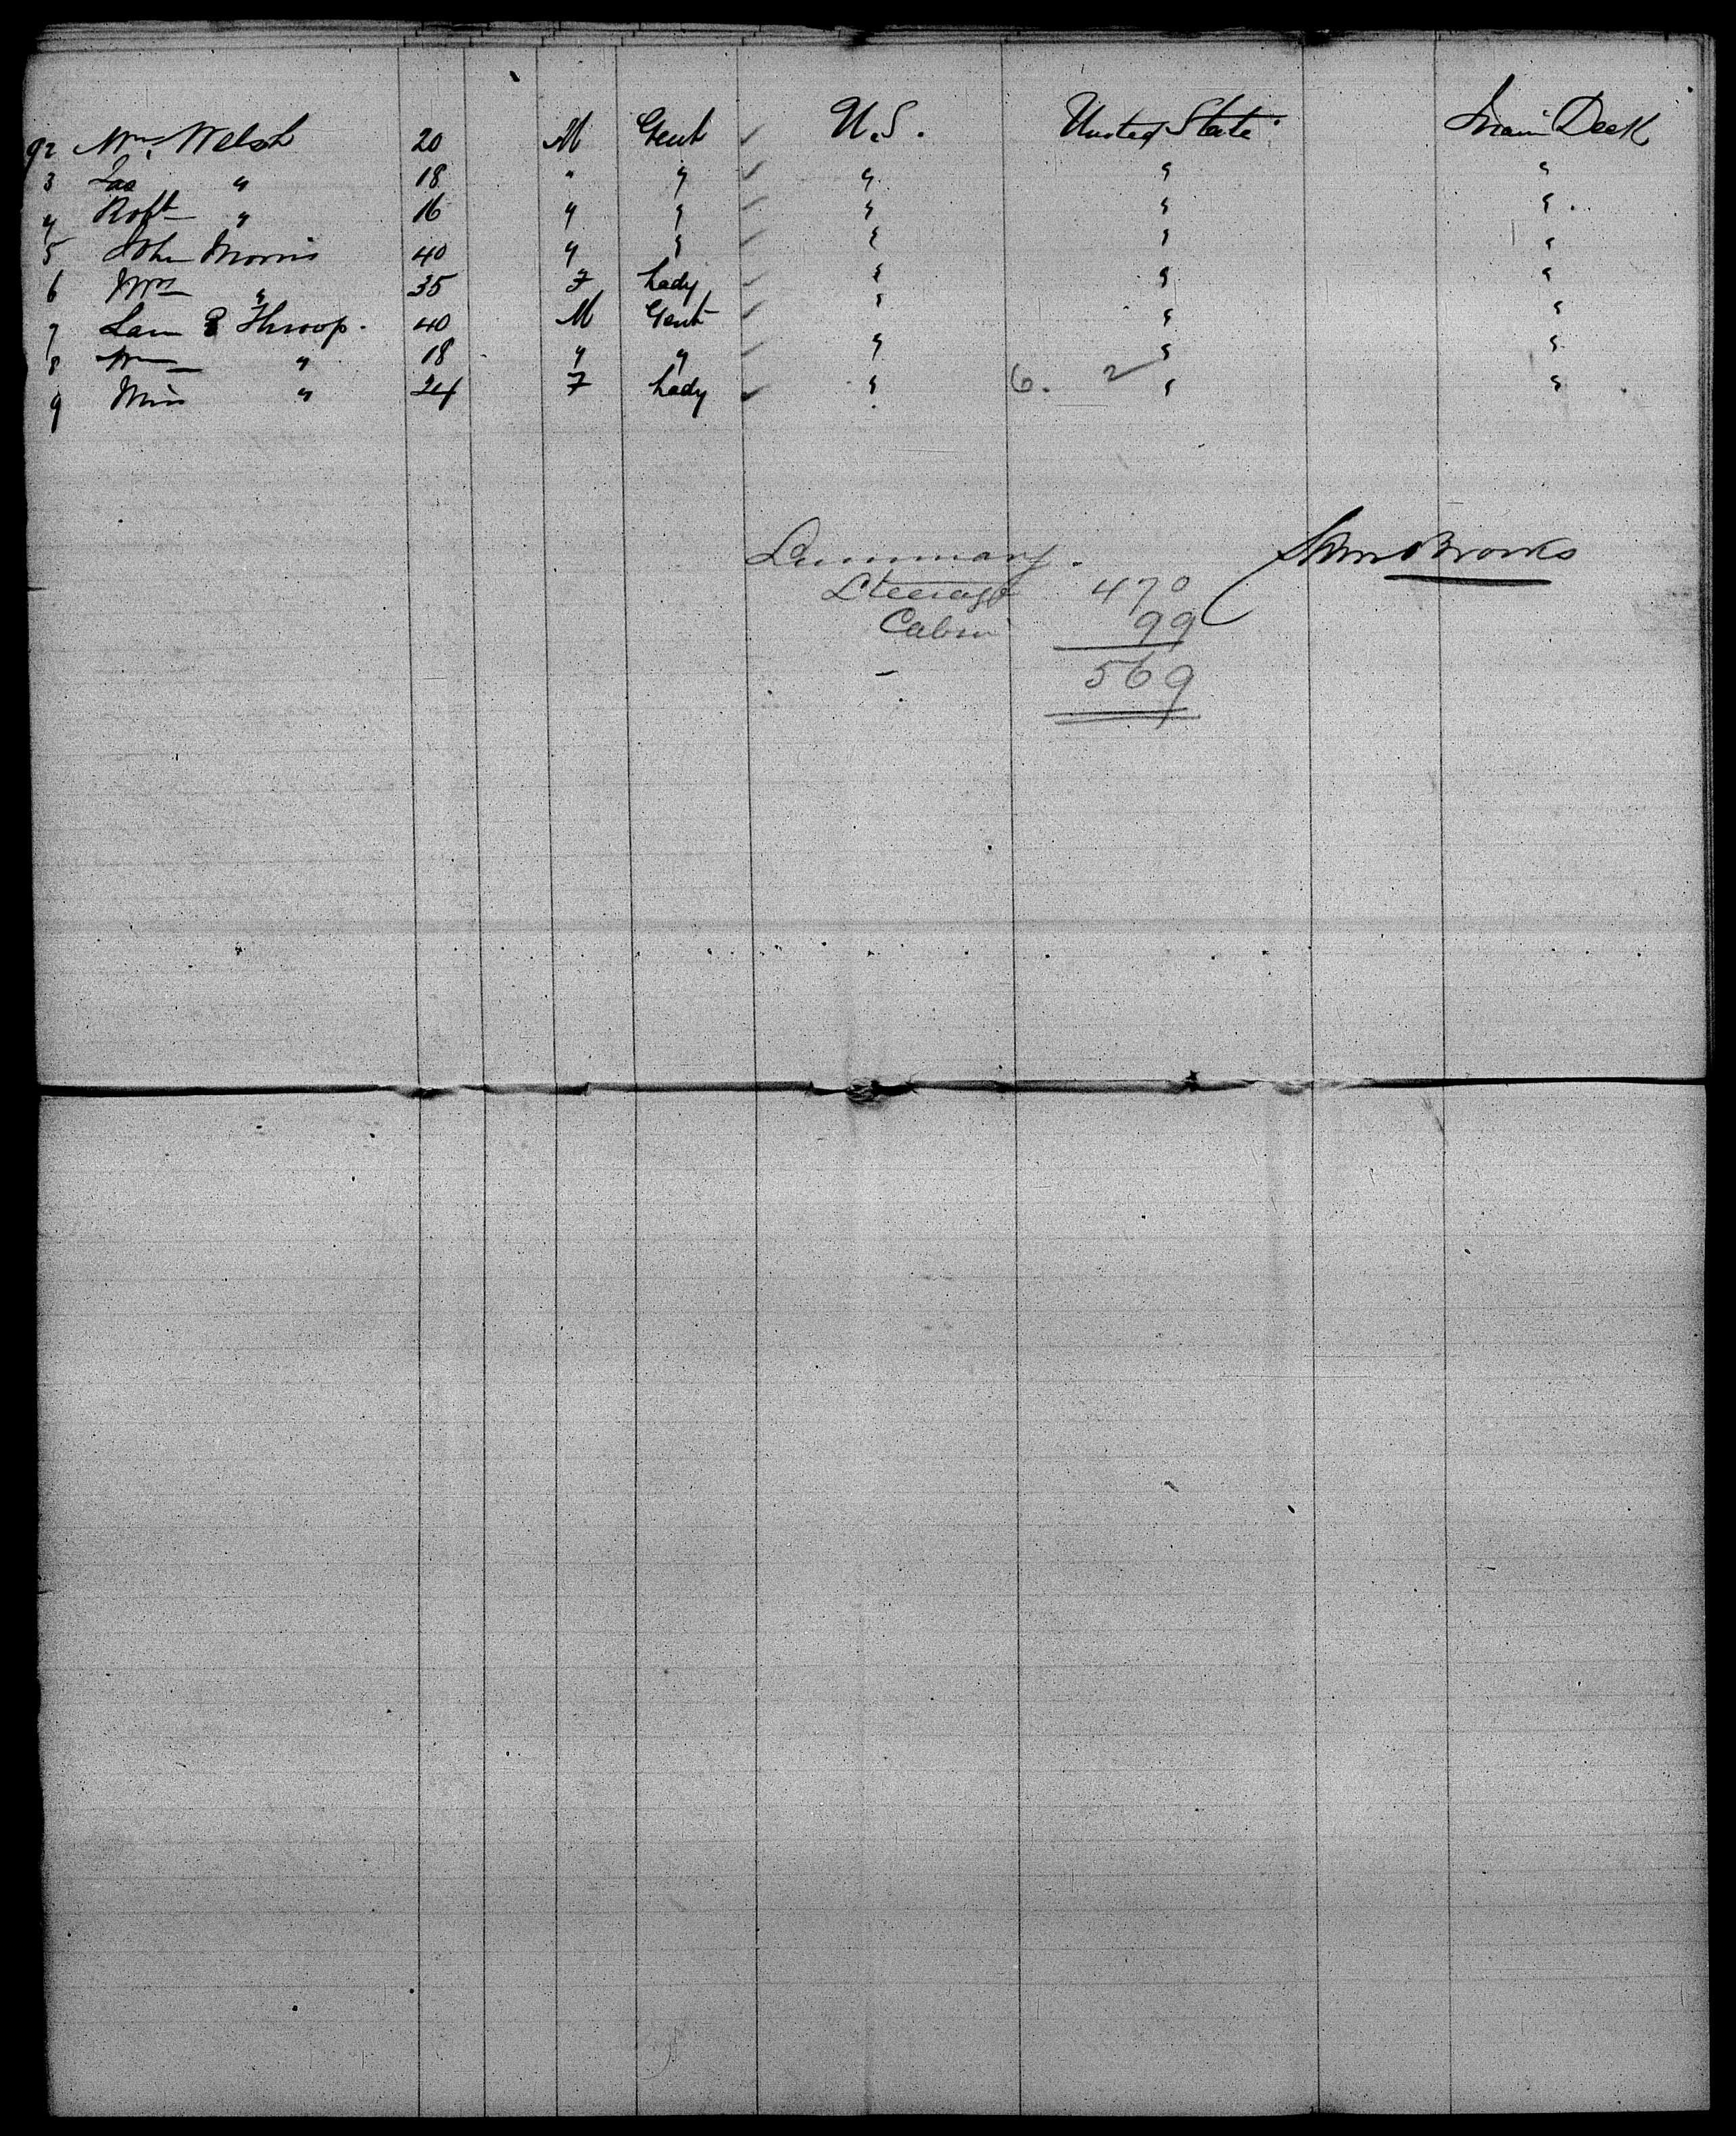 92 Wm. Welsh 20 M Gent ✓ U.S. United State Main Deck
3 Jas " 18 " " ✓ " " "
4 Robt " 16 " " ✓ " " "
5 John Morris 40 " " ✓ " " "
6 Mrs " 35 F Lady ✓ " " "
7 Sam Throop. 40 M Gent ✓ " " "
8 Wm " 18 " " ✓ " " "
9 Miss " 24 F Lady ✓ " 6. 2 " "
Summary.
John Brooks
Steerage 470
Cabin 99
569